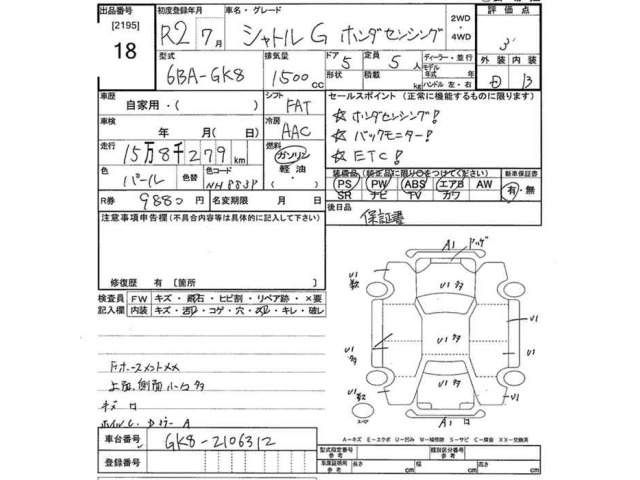 出品番号 初度登録年月 車名・グレード 2WD・4WD 評価点
[2195] R2年 7月 シャトル G ホンダセンシング
18 型式 排気量 ドア 定員 ディーラー・並行 外装 内装
6BA-GK8 1500cc 5 5人 モデル年式 年
形状 積載 kg ハンドル 左・右 B
車歴 シフト セールスポイント(正常に機能するものに限ります)
自家用・( ) FAT ☆ホンダセンシング!
車検 冷房 ☆バックモニター!
年 月( 日) AAC ☆ETC!
走行 15万8千279km 燃料 ガソリン・軽油・
色 色替 色コード 装備品(純正品に限り○をつけてください) 新車保証書
パール NH883P PS PW ABS エアB AW 有・無
R券 9880円 名変期限 月 日 SR ナビ TV カワ
注意事項申告欄(不具合内容等は具体的に記入して下さい) 後日品 保証書
修復歴 有[箇所 ]
検査員記入欄 FW キズ・飛石・ヒビ割・リペア跡・×要
内装 キズ・コゲ・穴・キレ・破レ
A1
U1
U1 U1 U1
U1
A1
上面、側面
キズ
車台番号 GK8-2106312
A=キズ E=エクボ U=凹み W=補修跡 S=サビ C=腐食 XX=交換済
登録番号 型式指定番号 参考 類別区分番号 参考
車庫証明用 参考 長さ cm 幅 cm 高さ cm